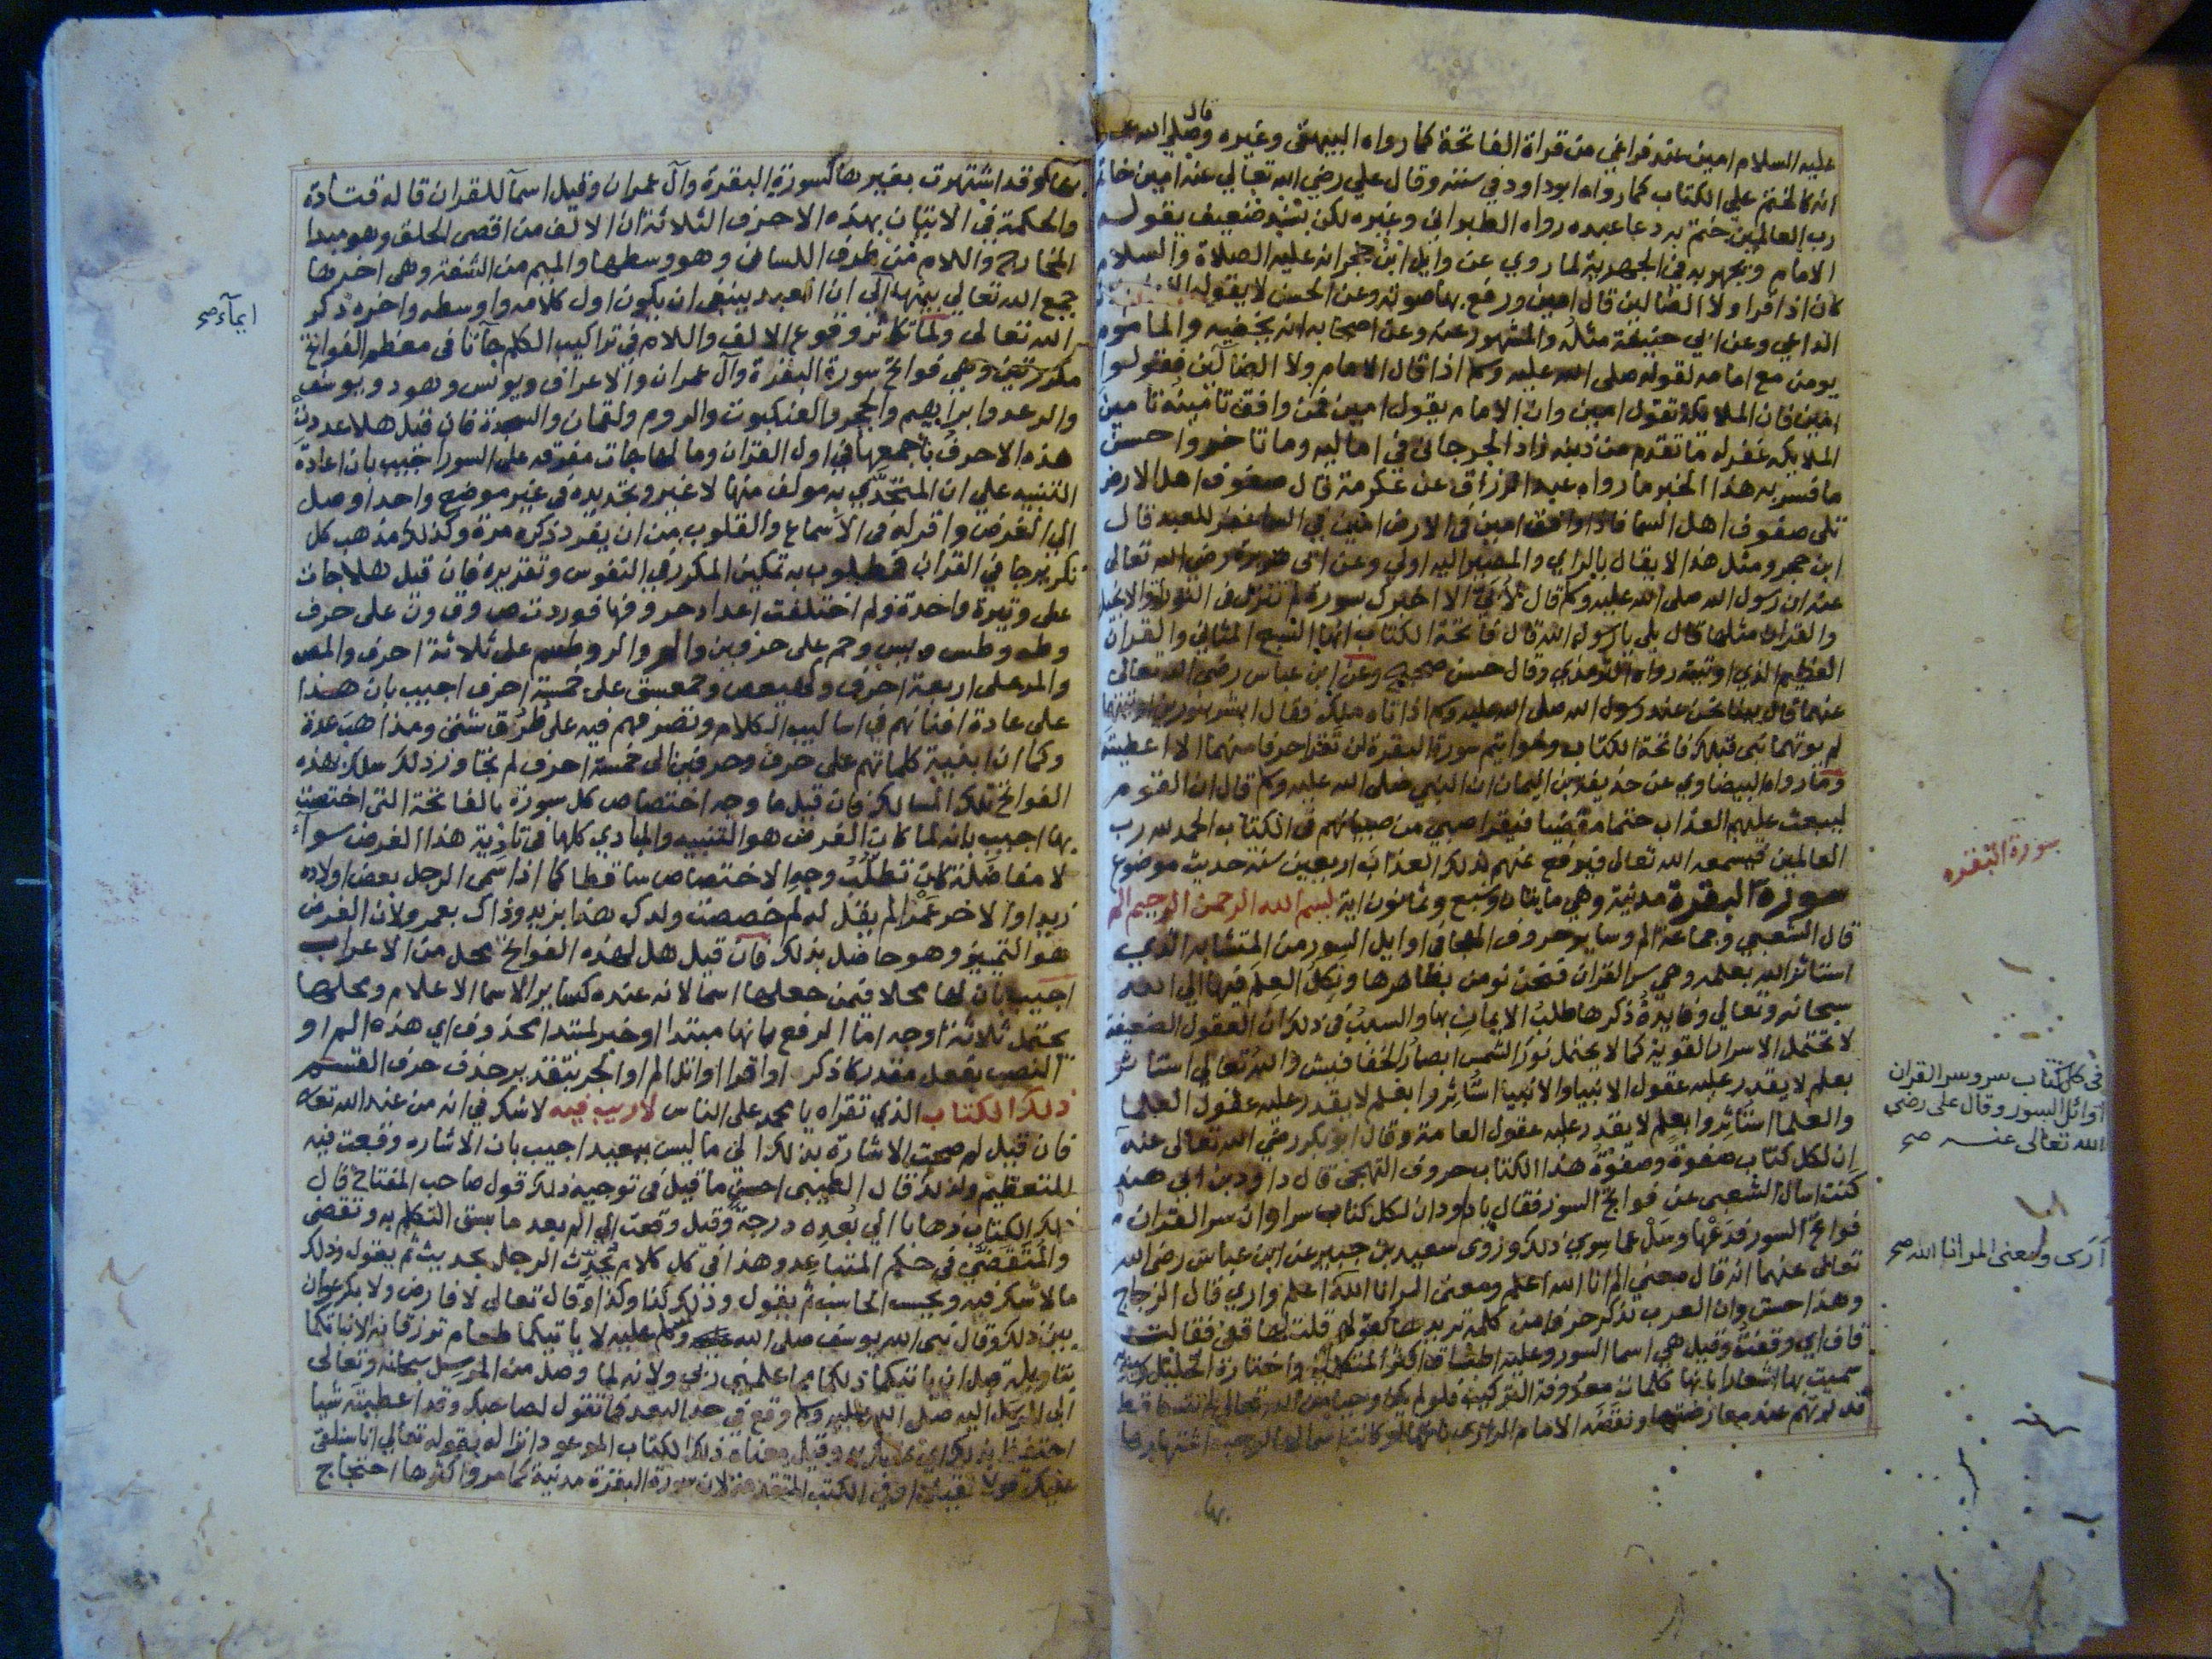 عليه السلام امين عند فراغي من قراة الفاتحة كما رواه البيهقي وغيره وقال صلى الله عليه
انه كالختم على الكتاب كما رواه ابو داود في سننه وقال علي رضي الله تعالى عنه امين خاتم
رب العالمين ختم به دعا عبده رواه الطبراني وغيره لكن بسند ضعيف يقوله
الامام ويجهر به في الجهرية لما روي عن وايل ابن حجر انه عليه الصلاة والسلام
كان اذا قرا ولا الضالين قال امين ورفع بها صوته وعن الحسن لا يقوله الامام لانه
الداعي وعن ابي حنيفة مثله والمشهور عنه وعن اصحابه انه يخفيه والماموم
يومن مع امامه لقوله صلى الله عليه وسلم اذا قال الامام ولا الضالين فقولوا
امين فان الملايكة تقول امين وان الامام يقول امين فمن وافق تامينه تامين
الملايكة غفر له ما تقدم من ذنبه زاد الجرجاني في اماليه وما تاخر واحسن
ما فسر به هذا الخبر ما رواه عبد الرزاق عن عكرمة قال صفوف اهل الارض
تلى صفوف اهل السما فاذا وافق امين في الارض امين في السما غفر للعبد قال
ابن حجر ومثل هذا لا يقال بالراي والمصير اليه اولي وعن ابي هريرة رضي الله تعالى
عنه ان رسول الله صلى الله عليه وسلم قال لأبي الا اخبرك بسورة لم تنزل في التوراة والانجيل
والقران مثلها قال بلى يا رسول الله قال فاتحة الكتاب انها السبع المثاني والقران
العظيم الذي اوتيته رواه الترمذي وقال حسن صحيح وعن ابن عباس رضي الله تعالى
عنهما قال بينا نحن عند رسول الله صلى الله عليه وسلم اذ اتاه ملك فقال ابشر بنورين اوتيتهما
لم يوتهما نبي قبلك فاتحة الكتاب وخواتيم سورة البقرة لن تقرا حرفا منهما الا اعطيته
وما رواه البيضاوي عن حذيفة بن اليمان ان النبي صلى الله عليه وسلم قال ان القوم
ليبعث عليهم العذاب حتما مقضيا فيقرا صبي من صبيانهم في الكتاب الحمد لله رب
العالمين فيسمعه الله تعالى فيرفع عنهم لذلك العذاب اربعين سنة حديث موضوع
سورة البقرة مدنية وهي مايتان وسبع وثمانون اية بسم الله الرحمن الرحيم الم
قال الشعبي وجماعة الم وساير حروف الهجا في اوايل السور من المتشابه الذي
استاثر الله بعلمه وهي سر القران فنحن نومن بظاهرها ونكل العلم فيها الى الله
سبحانه وتعالي وفايدة ذكرها طلب الايمان بها والسبب في ذلك ان العقول الضعيفة
لا تحتمل الاسرار القوية كما لا يحتمل نور الشمس ابصار الخفافيش والله تعالى استاثر
بعلم لا يقدر عليه عقول الانبيا والانبيا استاثروا بعلم لا يقدر عليه عقول العلما
والعلما استاثروا بعلم لا يقدر عليه عقول العامة وقال ابو بكر رضي الله تعالى عنه
ان لكل كتاب صفوة وصفوة هذا الكتاب حروف التهجي قال داود بن ابي هند
كنت اسال الشعبي عن فواتح السور فقال يا داود ان لكل كتاب سرا وان سر القران
فواتح السور فدعها وسل عما سوي ذلك وروى سعيد بن جبير عن ابن عباس رضي الله
تعالى عنهما انه قال معنى الم انا الله اعلم ومعنى الر انا الله اعلم واري قال الزجاج
وهذا حسن وان العرب تذكر حرفا من كلمة تريد بها كقولهم قلت لها قفي فقالت
قاف اي وقفت وقيل هي اسما السور وعليه اطباق اكثر المتكلمين واختاره الخليل
سميت بها اشعارا بانها كلمات معروفة التركيب فلو لم تكن وحيا من الله تعالى لم تتساقط
قدرتهم عند معارضتها ونقضه الامام الرازي بانها لو كانت اسما لها لوجب اشتهارها
بها
سورة البقره
في كل كتاب سر وسر القران
اوائل السور وقال على رضي
الله تعالى عنه صح
أرى ومعنى المر انا الله صح
بها وقد اشتهرت بغيرها كسورة البقرة وآل عمران وقيل اسمآ للقران قاله قتادة
والحكمة في الاتيان بهذه الاحرف الثلاثة ان الالف من اقصى الحلق وهو مبدا
المخارج واللام من طرف اللسان وهو وسطها والميم من الشفة وهي اخرها
جمع الله تعالي بينها الى ان العبد ينبغي ان يكون اول كلامه واوسطه واخره ذكر
الله تعالى ولما تكاثر وقوع الالف واللام في تراكيب الكلم جآتا في معظم الفواتح
مكررتين وهي فواتح سورة البقرة وآل عمران والاعراف ويونس وهود ويوسف
والرعد وابراهيم والحجر والعنكبوت والروم ولقمان والسجدة فان قيل هلا عددت
هذه الاحرف باجمعها في اول القران وما لها جات مفرقة على السور اجيب بان اعادة
التنبيه علي ان المتحدي به مولف منها لا غير وتجديده في غير موضع واحد اوصل
الى الغرض واقر له في الاسماع والقلوب من ان يفرد ذكره مرة وكذلك مذهب كل
تكرير جا في القران فمطلوب به تمكين المكرر في النفوس وتقريره فان قيل هلا جات
على وتيرة واحدة ولم اختلفت اعداد حروفها فوردت ص وق ون على حرف
وطه وطس ويس وحم على حرفين والم والر وطسم على ثلاثة احرف والمص
والمر على اربعة احرف وكهيعص وحمعسق على خمسة احرف اجيب بان هذا
على عادة افتنانهم في اساليب الكلام وتصرفهم فيه على طرق شتى ومذاهب عدة
وكما ان ابنية كلماتهم على حرف وحرفين الى خمسة احرف لم تتجاوز ذلك سلك بهذه
الفواتح تلك المسالك فان قيل ما وجه اختصاص كل سورة بالفاتحة التي اختصت
بها اجيب بانه لما كان الغرض هو التنبيه والمبادي كلها في تادية هذا الغرض سوآء
لا مفاضلة كان تطلب وجه الاختصاص ساقطا كما اذا سمى الرجل بعض اولاده
زيدا والاخر عمرا لم يقل له لم خصصت ولدك هذا بزيد وذاك بعمرو لان الغرض
هو التمييز وهو حاصل بذلك فان قيل هل لهذه الفواتح محل من الاعراب
اجيب بان لها محلا فيمن جعلها اسما لانه عنده كساير الاسما الاعلام ومحلها
يحتمل ثلاثة اوجه اما الرفع بانها مبتدا او خبر لمبتدا محذوف اي هذه الم او
النصب بفعل مقدر كاذكر او اقرا او اتل الم او الجر بتقدير حذف حرف القسم
ذلك الكتاب الذي تقراه يا محمد على الناس لا ريب فيه لا شك في انه من عند الله تعالى
فان قيل لم صحت الاشارة بذلك الى ما ليس ببعيد اجيب بان الاشارة وقعت فيه
للتعظيم ولذلك قال الطيبي احسن ما قيل في توجيه ذلك قول صاحب المفتاح قال
ذلك الكتاب ذهابا الي بعده درجة وقيل وقعت الى الم بعد ما سبق التكلم به وتقضى
والمتقضي في حكم المتباعد وهذا في كل كلام يحدث الرجل بحديث ثم يقول وذلك
ما لا شك فيه ويحسب الحاسب ثم يقول وذلك كذا وكذا وقال تعالي لا فارض ولا بكر عوان
بين ذلك وقال نبي الله يوسف صلى الله عليه وسلم لا ياتيكما طعام ترزقانه الا نباتكما
بتاويله قبل ان ياتيكما ذلكما مما علمني ربي ولانه لما وصل من المرسل سبحانه وتعالى
الى المرسل اليه صلى الله عليه وسلم وقع في حد البعد كما تقول لصاحبك وقد اعطيته شيا
احتفظ بذلك وقيل معناه ذلك الكتاب الموعود انزاله بقوله تعالى انا سنلقي
عليك قولا ثقيلا او في الكتب المتقدمة لان سورة البقرة مدنية كما مر واكثرها احتجاج
ايمآء صح